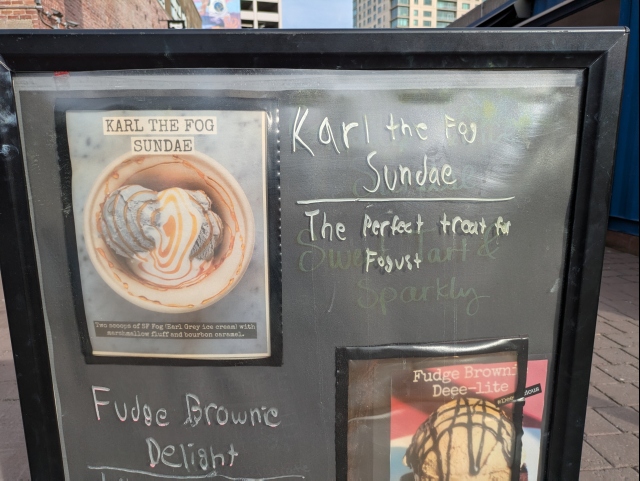 KARL THE FOG
SUNDAE
Two scoops of SF Fog (Earl Grey ice cream) with
marshmallow fluff and bourbon caramel.
Karl the Fog
Sundae
The Perfect treat for
Fogust
Sweet Tart &
Sparkly
Fudge Brownie
Delight
Fudge Browni
Deee-lite